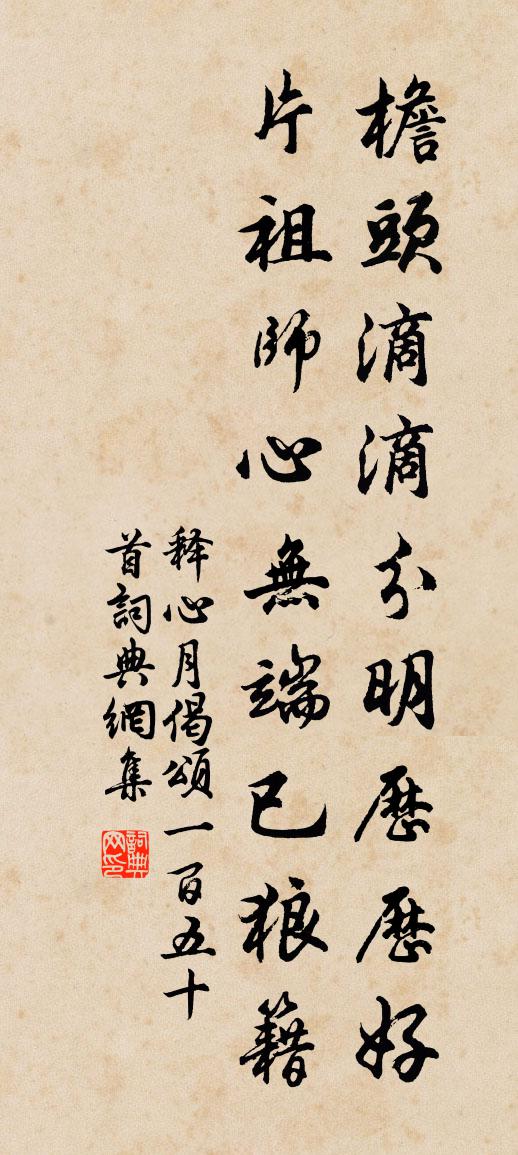 檐頭滴滴分明歷歷好
片祖師心無端已狼籍
释心月偈頌一百五十
首詞典網集
詞典網印